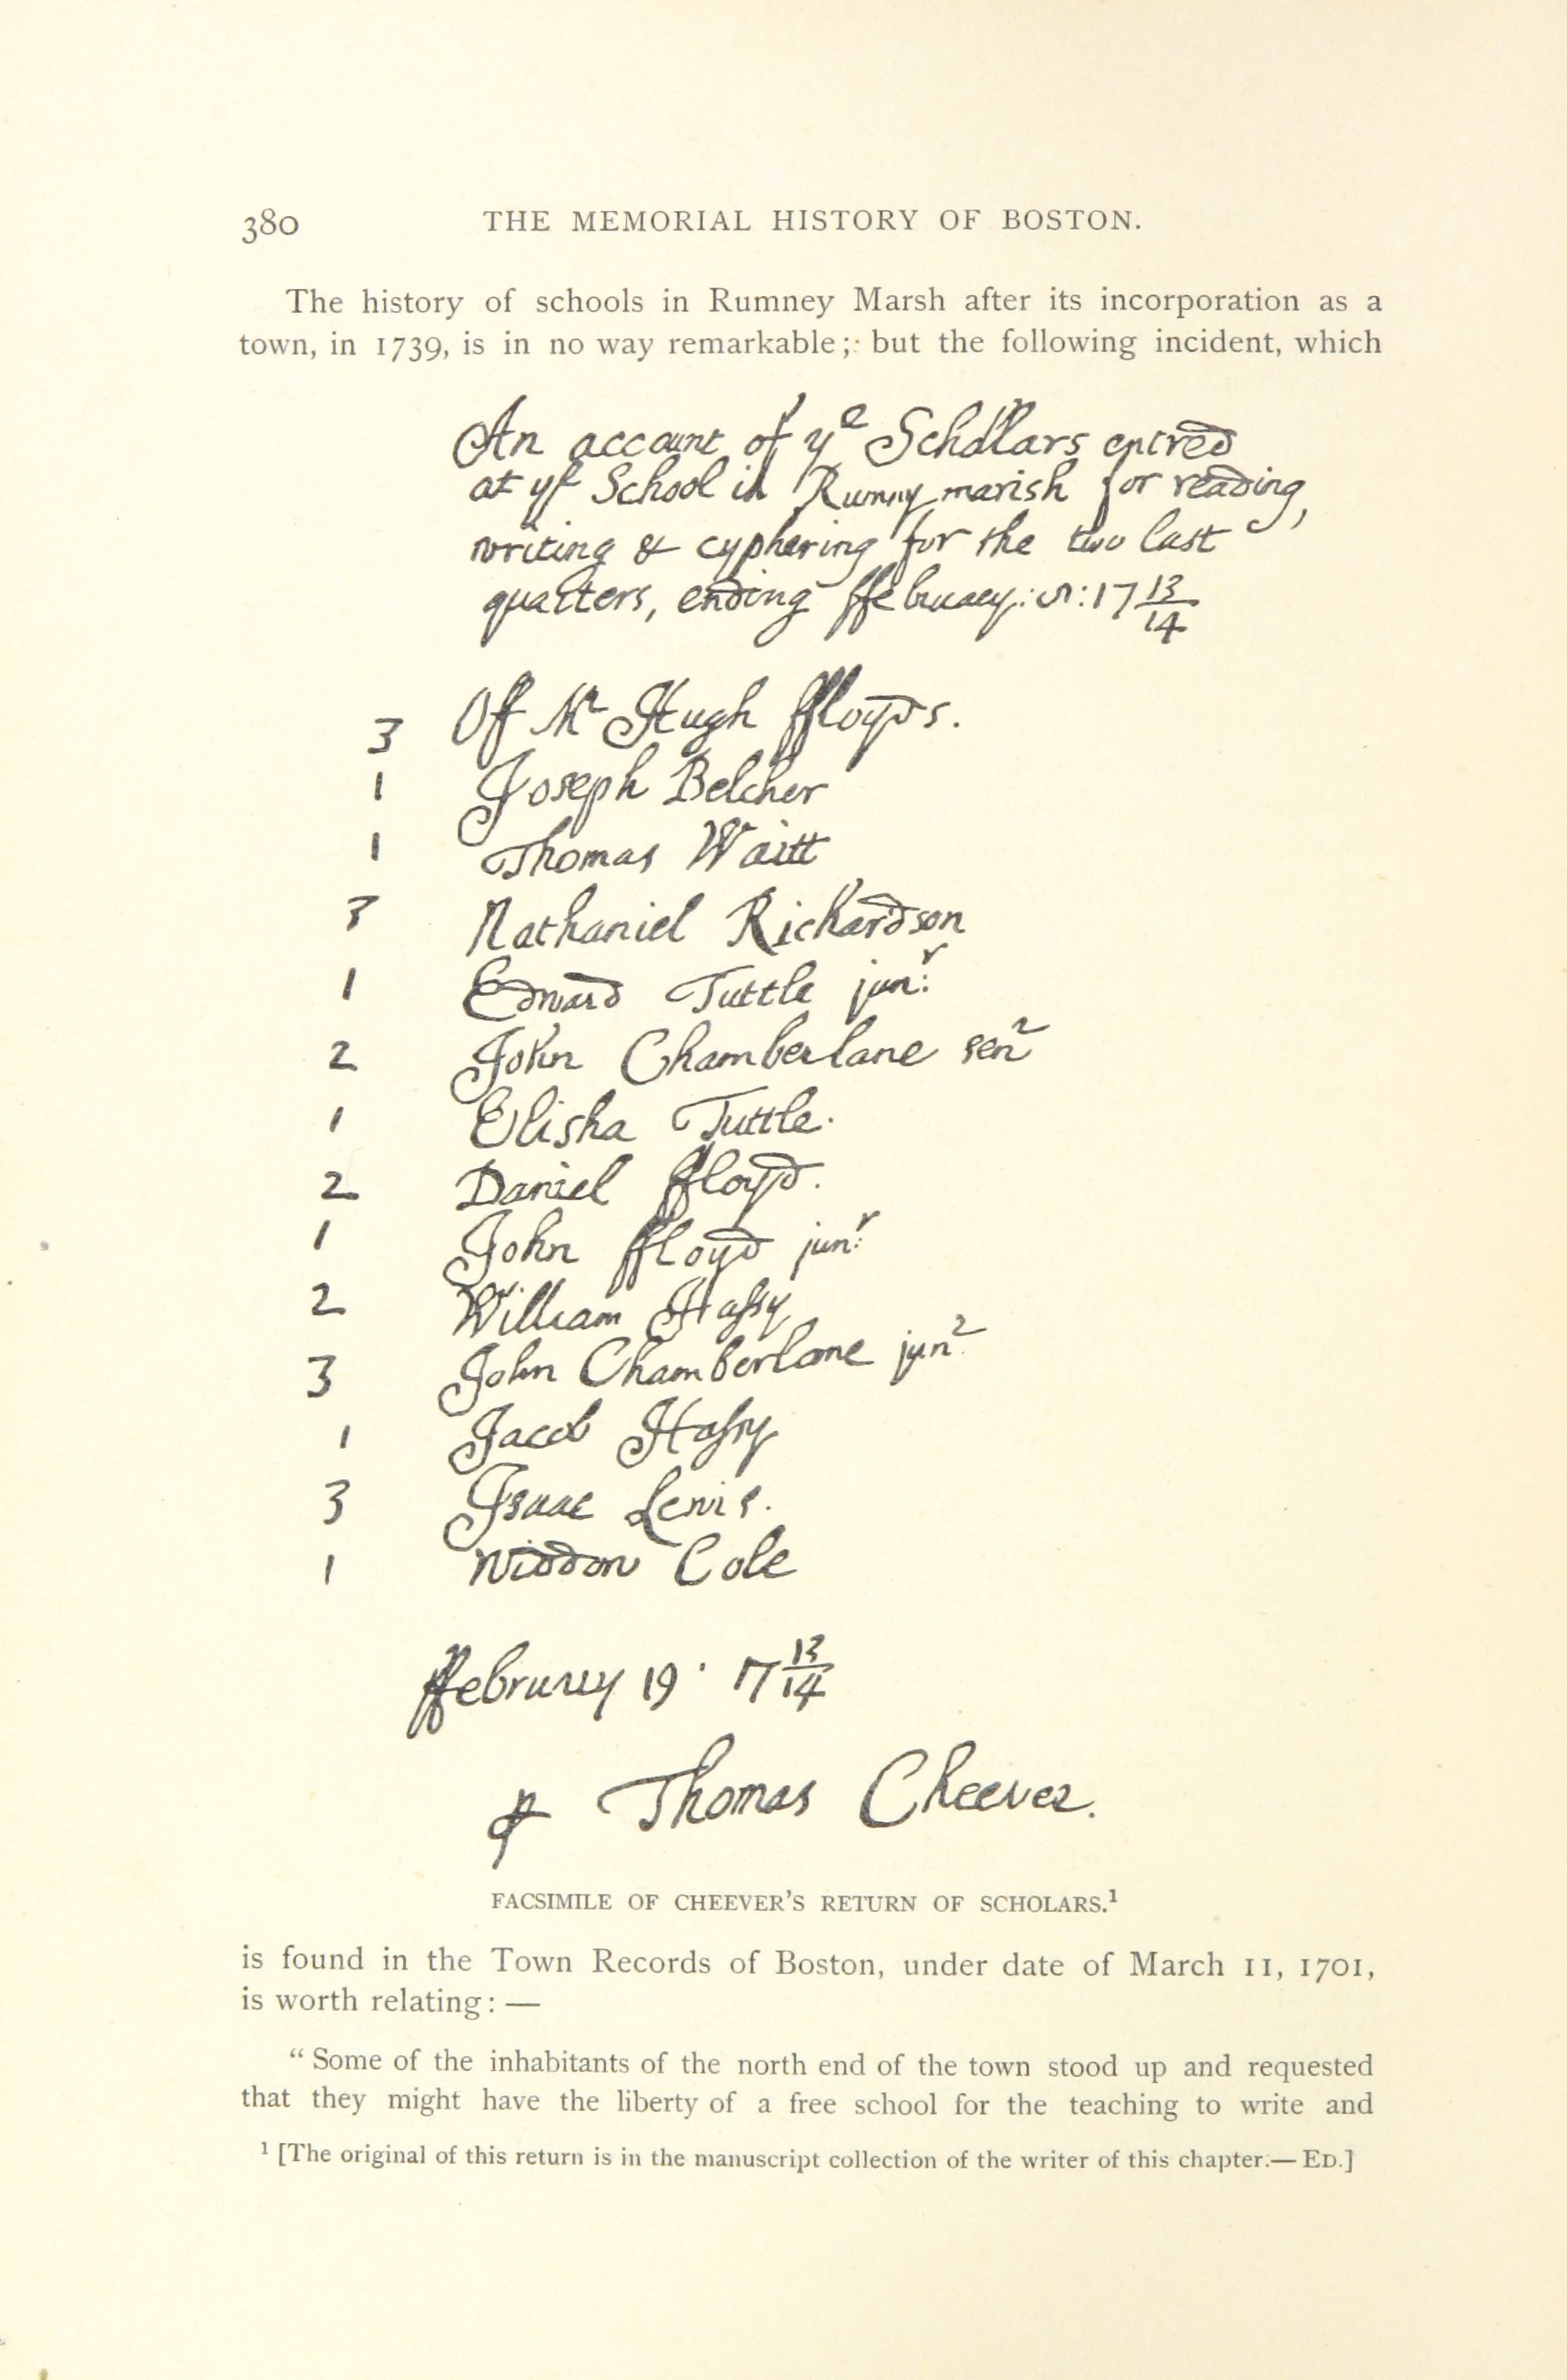 380 THE MEMORIAL HISTORY OF BOSTON.
The history of schools in Rumney Marsh after its incorporation as a
town, in 1739, is in no way remarkable; but the following incident, which
An account of yᵉ Schollars entred
at yᵉ School in Rumny marish for reading,
writing & cyphering for the two last
quarters, ending ffebruary: 17 13/14
3 Of Mʳ Hugh ffloyds.
1 Joseph Belcher
1 Thomas Waitt
3 Nathaniel Richardson
1 Edward Tuttle junʳ:
2 John Chamberlane senʳ
1 Elisha Tuttle.
2 Daniel ffloyd.
1 John ffloyd junʳ:
2 William Haſsy
3 John Chamberlane junʳ.
1 Jacob Haſsy
3 Isaac Lewis.
1 widdow Cole
ffebruary 19 · 17 13/14
⅌ Thomas Cheever.
FACSIMILE OF CHEEVER'S RETURN OF SCHOLARS.¹
is found in the Town Records of Boston, under date of March 11, 1701,
is worth relating: —
"Some of the inhabitants of the north end of the town stood up and requested
that they might have the liberty of a free school for the teaching to write and
¹ [The original of this return is in the manuscript collection of the writer of this chapter.— ED.]